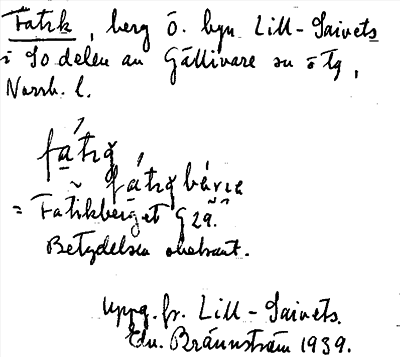 Fatik, berg ö. byn Lill-Saivets
i SO delen av Gällivare sn o tg,
Norrb. l.
fátig,
fátigbárie
= Fatikberget G 29.
Betydelsen obekant.
Uppg. fr. Lill-Saivets.
Edv. Brännström 1939.